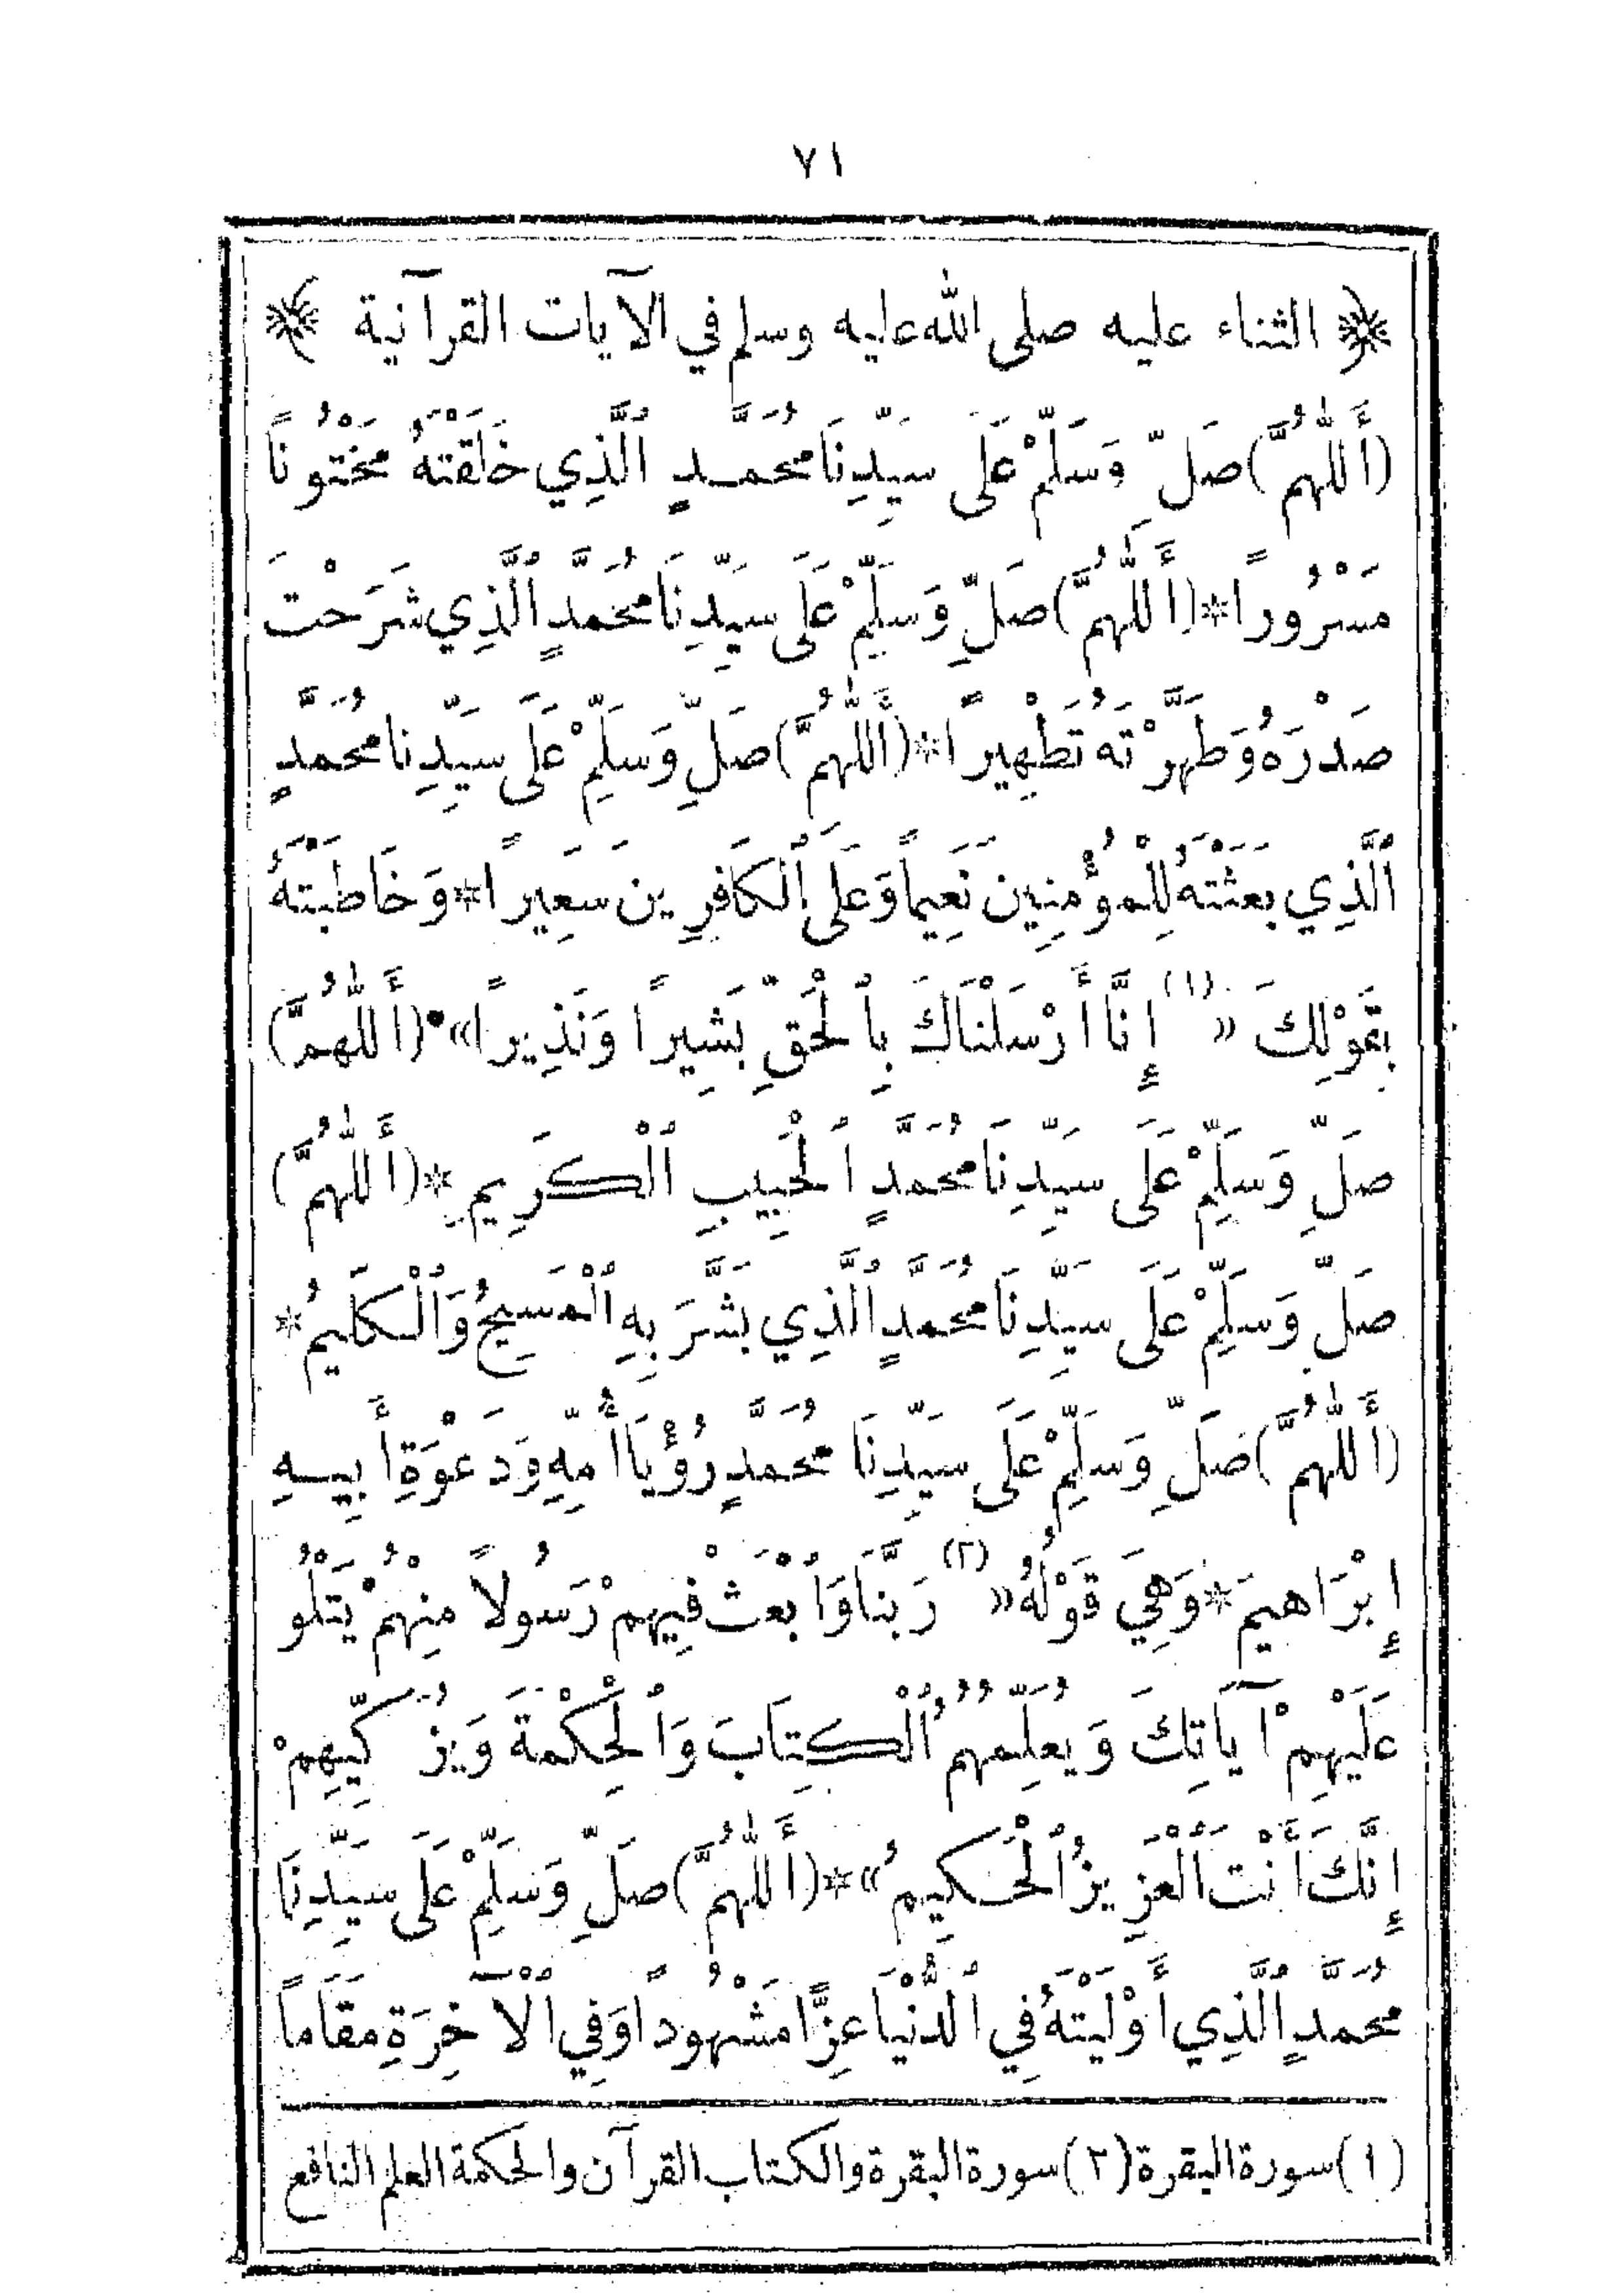 ٧١
الثناء عليه صلى الله عليه وسلم في الآيات القرآنية
(أَللّٰهُمَّ) صَلِّ وَسَلِّمْ عَلَى سَيِّدِنَا مُحَمَّدٍ ٱلَّذِي خَلَقْتَهُ مَخْتُونًا
مَسْرُورًا * (أَللّٰهُمَّ) صَلِّ وَسَلِّمْ عَلَى سَيِّدِنَا مُحَمَّدٍ ٱلَّذِي شَرَحْتَ
صَدْرَهُ وَطَهَّرْتَهُ تَطْهِيرًا * (أَللّٰهُمَّ) صَلِّ وَسَلِّمْ عَلَى سَيِّدِنَا مُحَمَّدٍ
ٱلَّذِي بَعَثْتَهُ لِلْمُؤْمِنِينَ نَعِيماً وَعَلَى ٱلْكَافِرِينَ سَعِيرًا * وَخَاطَبْتَهُ
بِقَوْلِكَ «(١) إِنَّا أَرْسَلْنَاكَ بِٱلْحَقِّ بَشِيراً وَنَذِيراً» * (أَللّٰهُمَّ)
صَلِّ وَسَلِّمْ عَلَى سَيِّدِنَا مُحَمَّدٍ ٱلْحَبِيبِ ٱلْكَرِيمِ * (أَللّٰهُمَّ)
صَلِّ وَسَلِّمْ عَلَى سَيِّدِنَا مُحَمَّدٍ ٱلَّذِي بَشَّرَ بِهِ ٱلْمَسِيحُ وَٱلْكَلِيمُ *
(أَللّٰهُمَّ) صَلِّ وَسَلِّمْ عَلَى سَيِّدِنَا مُحَمَّدٍ رُؤْيَا أُمِّهِ وَدَعْوَةِ أَبِيهِ
إِبْرَاهِيمَ * وَهِيَ قَوْلُهُ «(٢) رَبَّنَا وَٱبْعَثْ فِيهِمْ رَسُولاً مِنْهُمْ يَتْلُو
عَلَيْهِمْ آيَاتِكَ وَيُعَلِّمُهُمُ ٱلْكِتَابَ وَٱلْحِكْمَةَ وَيُزَكِّيهِمْ
إِنَّكَ أَنْتَ ٱلْعَزِيزُ ٱلْحَكِيمُ» * (أَللّٰهُمَّ) صَلِّ وَسَلِّمْ عَلَى سَيِّدِنَا
مُحَمَّدٍ ٱلَّذِي أَوْلَيْتَهُ فِي ٱلدُّنْيَا عِزًّا مَشْهُودًا وَفِي ٱلْآخِرَةِ مَقَاماً
(١) سورة البقرة (٢) سورة البقرة والكتاب القرآن والحكمة العلم النافع